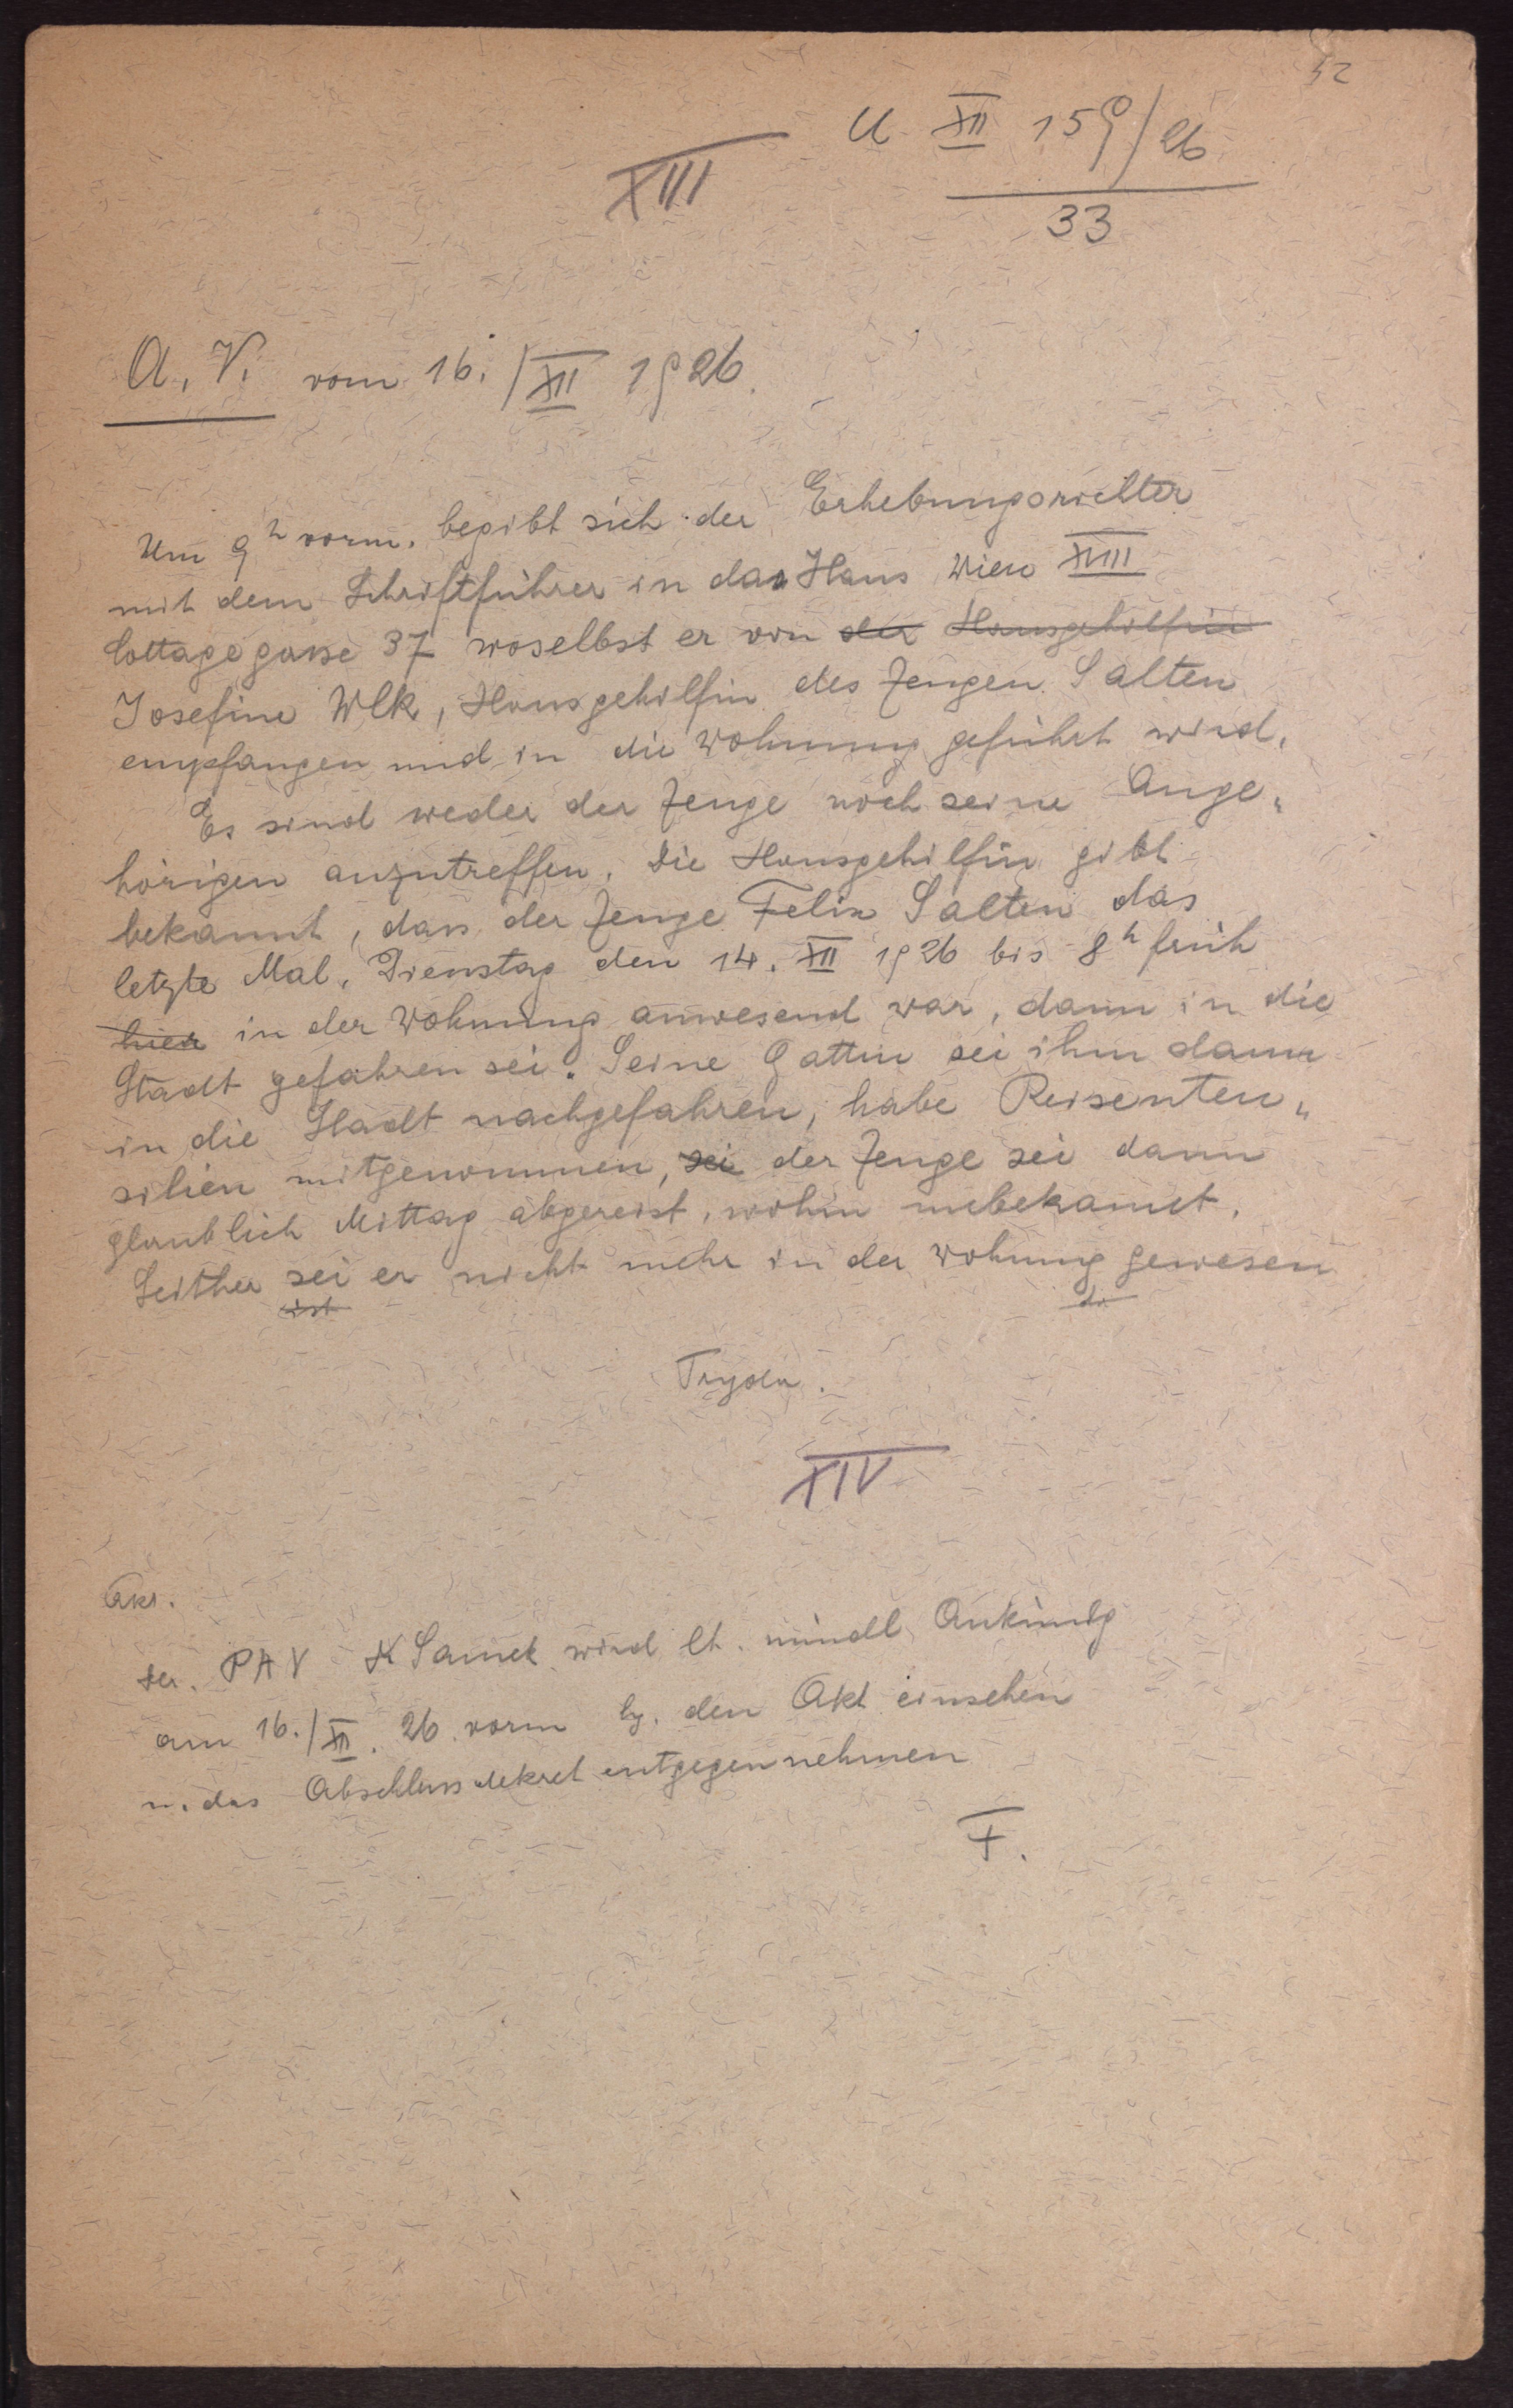 52
U XII 159/26
33
XIII
A. V. vom 16. / XII 1926.
Um 9h vorm. begibt sich der Erhebungsrichter
mit dem Schriftführer in das Haus Wien XVIII
Cottagegasse 37 woselbst er von der Hausgehilfin
Josefine Wlk, Hausgehilfin des Zeugen Salten
empfangen und in die Wohnung geführt wird.
Es sind weder der Zeuge noch seine Ange„
hörigen anzutreffen. Die Hausgehilfin gibt
bekannt, dass der Zeuge Felix Salten das
letzte Mal, Dienstag den 14. XII 1926 bis 8h früh
hier in der Wohnung anwesend war, dann in die
Stadt gefahren sei. Seine Gattin sei ihm dann
in die Stadt nachgefahren, habe Reiseuten„
silien mitgenommen, sei der Zeuge sei dann
glaublich Mittag abgereist, wohin unbekannt.
Seither sei er nicht mehr in der Wohnung gewesen
ist
XIV
Akt.
Der PAV K Samek wird lt. mündl Ankündg
am 16./XII. 26 vorm hg. den Akt einsehen
u. das Abschlussdekret entgegennehmen
F.